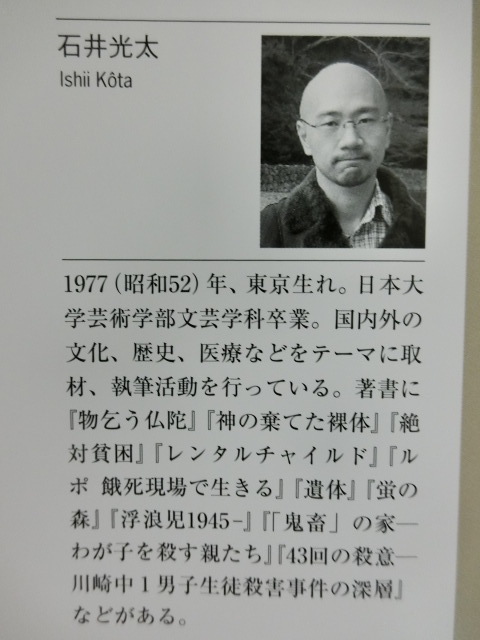 石井光太
Ishii Kôta
1977（昭和52）年、東京生れ。日本大
学芸術学部文芸学科卒業。国内外の
文化、歴史、医療などをテーマに取
材、執筆活動を行っている。著書に
『物乞う仏陀』『神の棄てた裸体』『絶
対貧困』『レンタルチャイルド』『ル
ポ 餓死現場で生きる』『遺体』『蛍の
森』『浮浪児1945-』『「鬼畜」の家―
わが子を殺す親たち』『43回の殺意―
川崎中1男子生徒殺害事件の深層』
などがある。